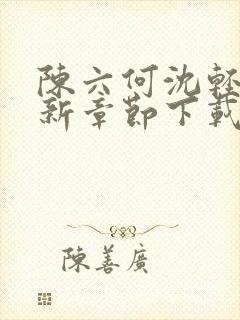 陳六何沈輕
新章節下載
陳善廣